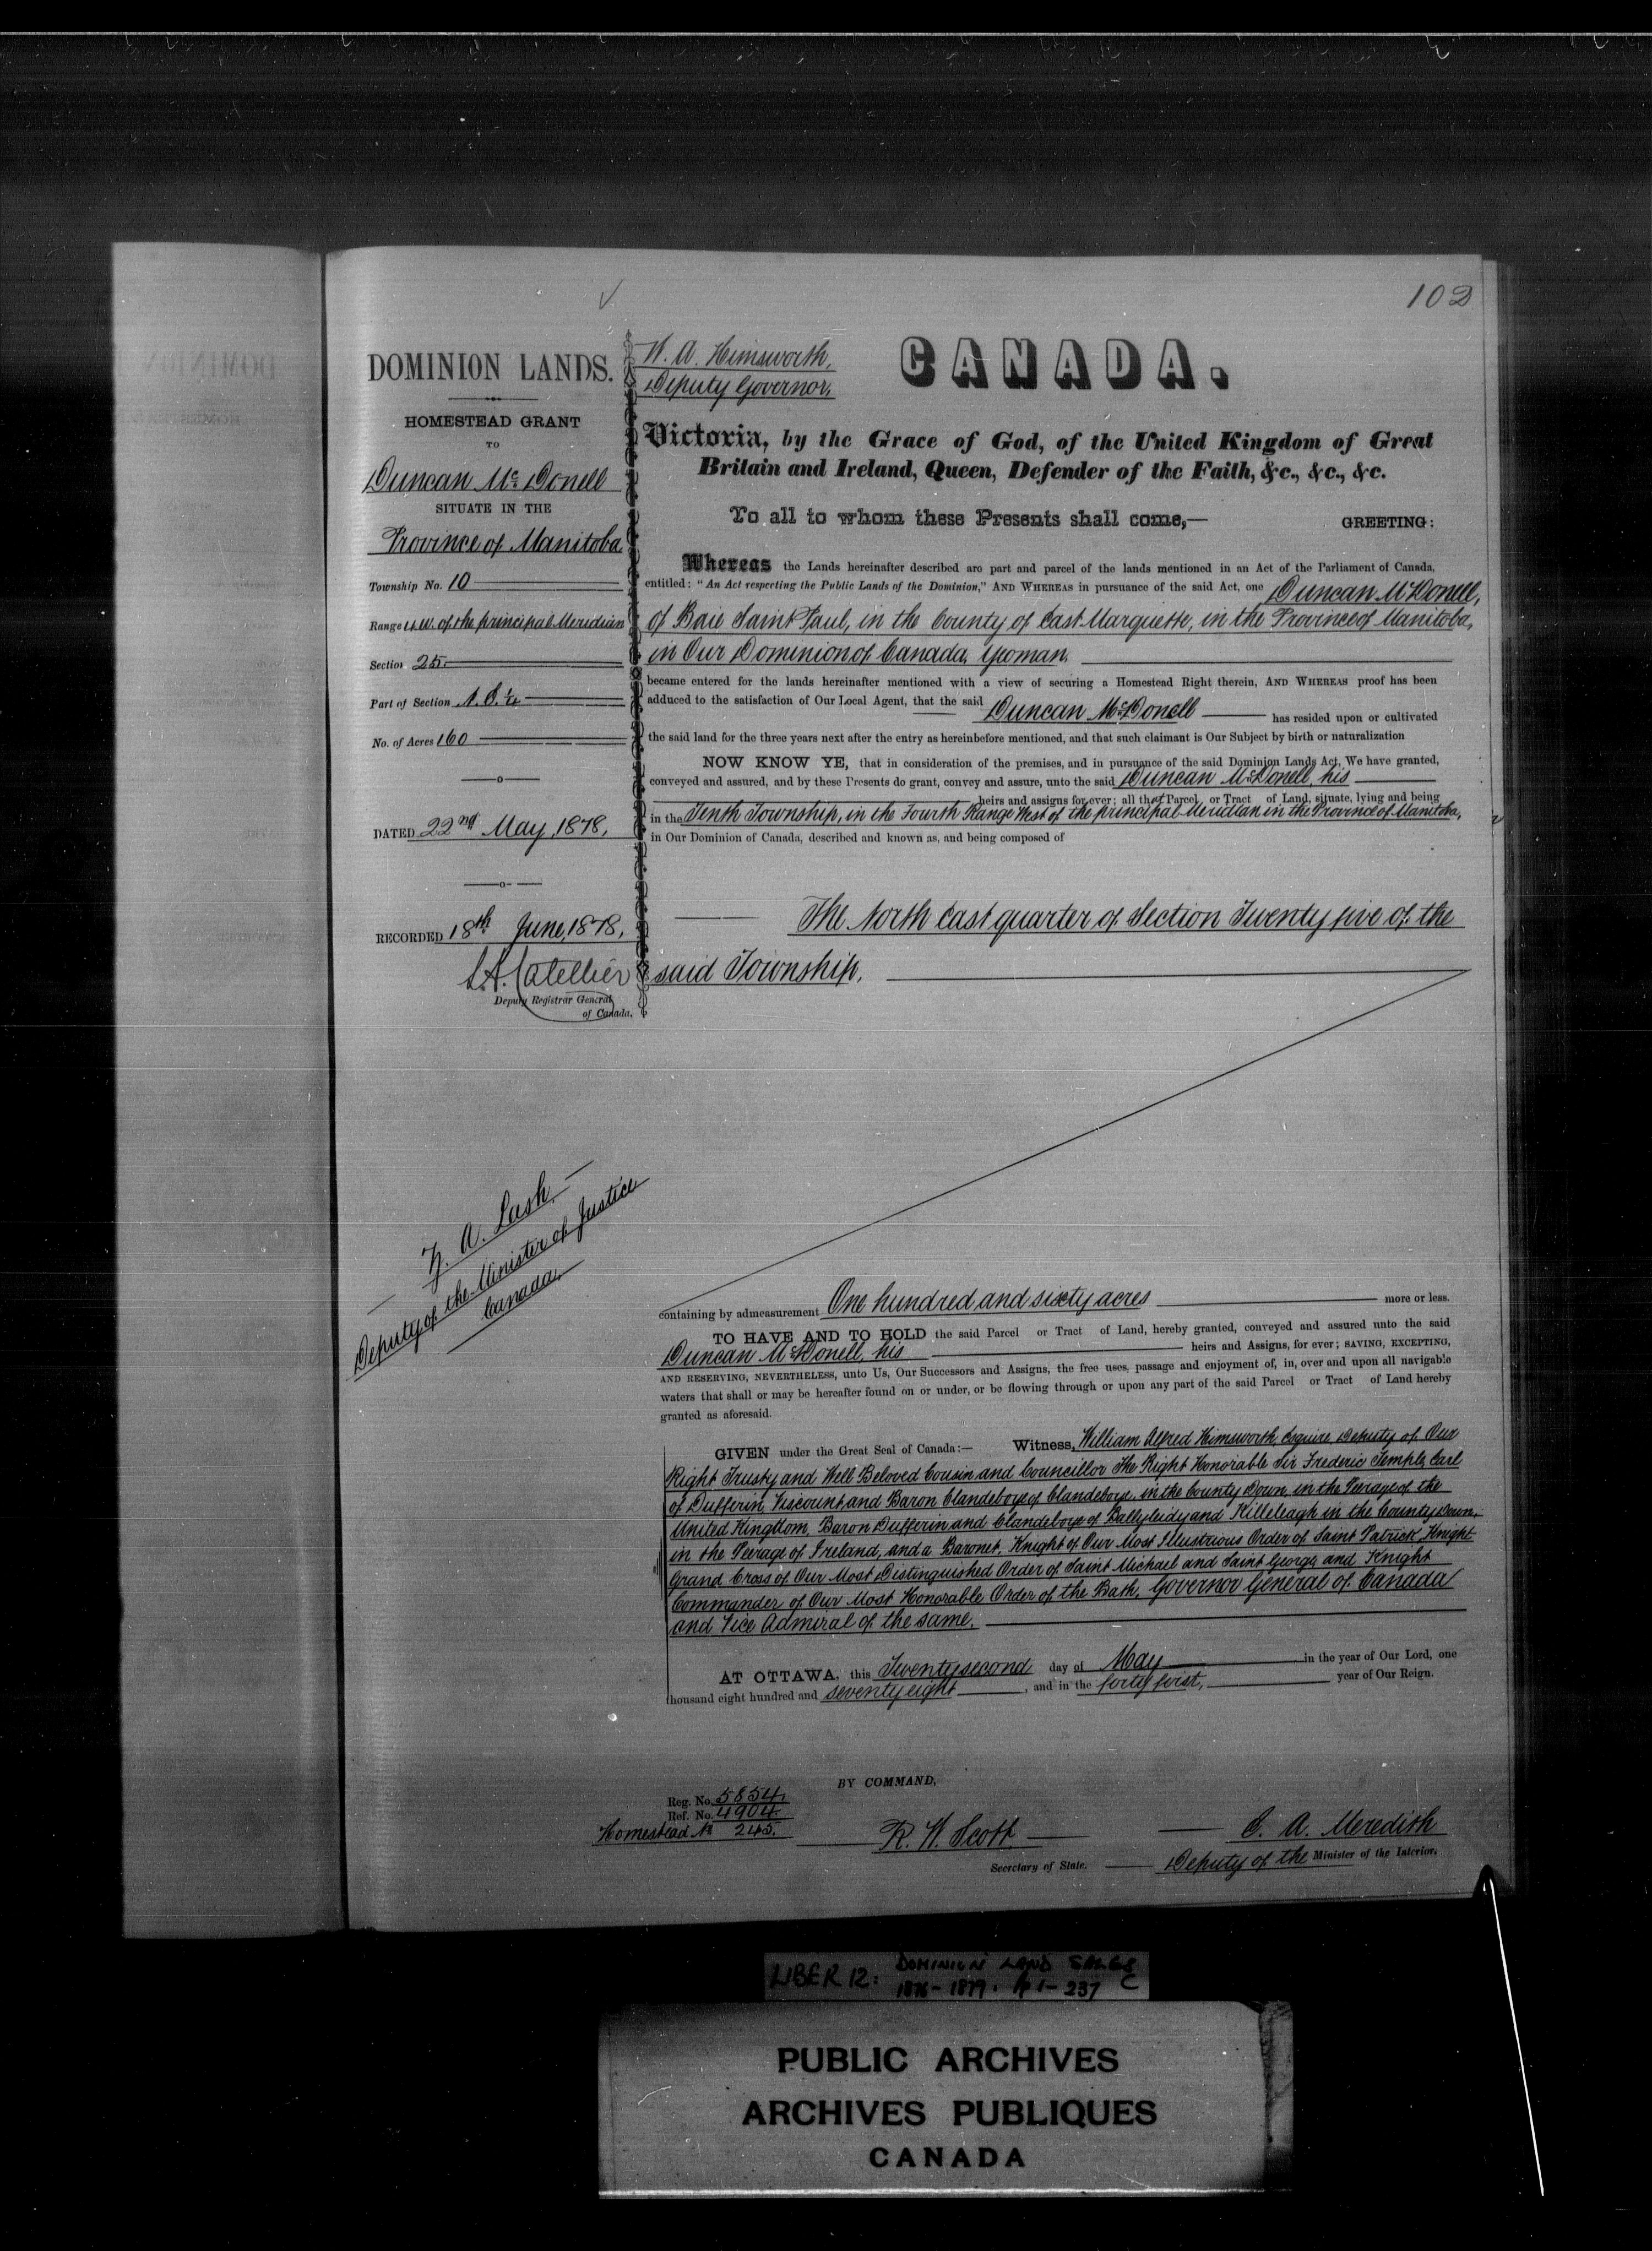 102
DOMINION LANDS.
HOMESTEAD GRANT
TO
Duncan McDonell
SITUATE IN THE
Province of Manitoba
Township No. 10
Range 4 W. of the principal Meridian
Section 25.
Part of Section N. E. ¼
No. of Acres 160
DATED 22nd May, 1878,
RECORDED 18th June, 1878,
L. A. Catellier
Deputy Registrar General
of Canada.
Z. A. Lash
Deputy of the Minister of Justice
Canada.
W. A. Himsworth,
Deputy Governor.
CANADA.
Victoria, by the Grace of God, of the United Kingdom of Great
Britain and Ireland, Queen, Defender of the Faith, &c., &c., &c.
To all to whom these Presents shall come,— GREETING:
Whereas the Lands hereinafter described are part and parcel of the lands mentioned in an Act of the Parliament of Canada,
entitled: "An Act respecting the Public Lands of the Dominion," AND WHEREAS in pursuance of the said Act, one Duncan McDonell,
of Baie Saint Paul, in the County of East Marquette, in the Province of Manitoba,
in Our Dominion of Canada, Yeoman.
became entered for the lands hereinafter mentioned with a view of securing a Homestead Right therein, AND WHEREAS proof has been
adduced to the satisfaction of Our Local Agent, that the said Duncan McDonell has resided upon or cultivated
the said land for the three years next after the entry as hereinbefore mentioned, and that such claimant is Our Subject by birth or naturalization
NOW KNOW YE, that in consideration of the premises, and in pursuance of the said Dominion Lands Act, We have granted,
conveyed and assured, and by these Presents do grant, convey and assure, unto the said Duncan McDonell, his
heirs and assigns for ever; all that Parcel or Tract of Land, situate, lying and being
in the Tenth Township, in the Fourth Range West of the principal Meridian in the Province of Manitoba,
in Our Dominion of Canada, described and known as, and being composed of
The North East quarter of Section Twenty five of the
said Township.
containing by admeasurement One hundred and sixty acres more or less.
TO HAVE AND TO HOLD the said Parcel or Tract of Land, hereby granted, conveyed and assured unto the said
Duncan McDonell, his heirs and Assigns, for ever; SAVING, EXCEPTING,
AND RESERVING, NEVERTHELESS, unto Us, Our Successors and Assigns, the free uses, passage and enjoyment of, in, over and upon all navigable
waters that shall or may be hereafter found on or under, or be flowing through or upon any part of the said Parcel or Tract of Land hereby
granted as aforesaid.
GIVEN under the Great Seal of Canada:— Witness, William Alfred Himsworth, Esquire, Deputy of Our
Right Trusty and Well Beloved Cousin and Councillor The Right Honorable Sir Frederic Temple, Earl
of Dufferin, Viscount and Baron Clandeboye of Clandeboye, in the County Down, in the Peerage of the
United Kingdom, Baron Dufferin and Clandeboye of Ballyleidy and Killeleagh in the County Down,
in the Peerage of Ireland, and a Baronet, Knight of Our Most Illustrious Order of Saint Patrick, Knight
Grand Cross of Our Most Distinguished Order of Saint Michael and Saint George, and Knight
Commander of Our Most Honorable Order of the Bath, Governor General of Canada
and Vice Admiral of the same.
AT OTTAWA, this Twenty second day of May in the year of Our Lord, one
thousand eight hundred and seventy eight, and in the forty first, year of Our Reign.
BY COMMAND,
Reg. No. 5854.
Ref. No. 4904.
Homestead No 245.
R. W. Scott
Secretary of State.
E. A. Meredith
Deputy of the Minister of the Interior.
LIBER 12: DOMINION LAND SALES
1876-1879. pp 1-237 C
PUBLIC ARCHIVES
ARCHIVES PUBLIQUES
CANADA